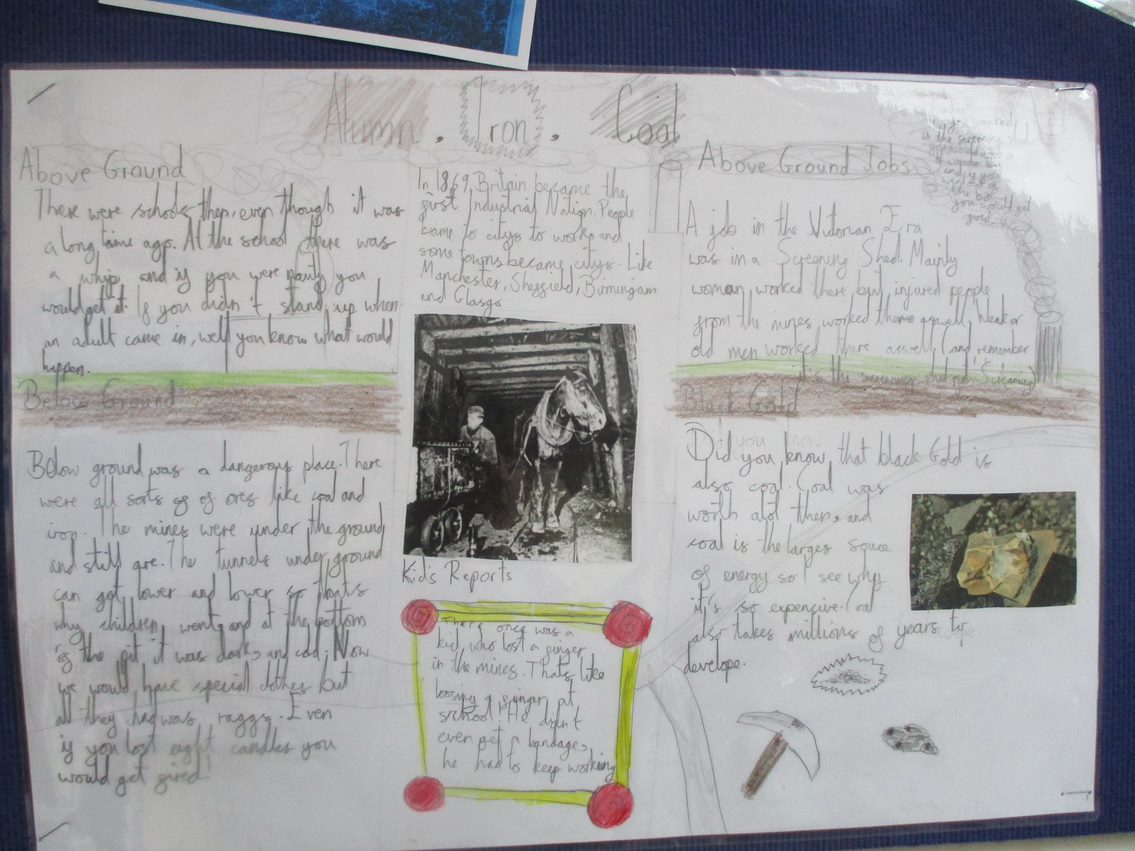 Alumn, Iron, Coal
Above Ground
There were schools then, even though it was
a long time ago. At the school there was
a whip and if you were nauty you
would get it. If you didn't stand up when
an adult came in, well you know what would
happen.
Below Ground
Below ground was a dangerous place. There
were all sorts of of ores like coal and
iron. The mines were under the ground
and still are. The tunnels under ground
can get lower and lower so thats
why children went and at the bottom
of the pit it was dark, and cold. Now
we would have special clothes but
all they had was raggs. Even
if you lost eight candles you
would get fired!
In 1869, Britain became the
first Industrial Nation. People
came to citys to work and
some towns became citys. Like
Manchester, Sheffield, Birmingam
and Glasgo
Kid's Reports
There once was a
kid, who lost a finger
in the mines. Thats like
loosing a finger at
school! He didn't
even get a bandage,
he had to keep working
Above Ground Jobs
A job in the Victorian Era
was in a Screening Shed. Mainly
woman worked there but injured people
from the mines, worked there aswell. Weak or
old men worked there aswell (and remember
it's the screening shed not Screaming)
Black Gold
Did you know that black Gold is
also coal. Coal was
worth alot then, and
coal is the larges souce
of energy so I see why
it's so expencive. Coal
also takes millions of years to
develope.
in the screening shed
you would get